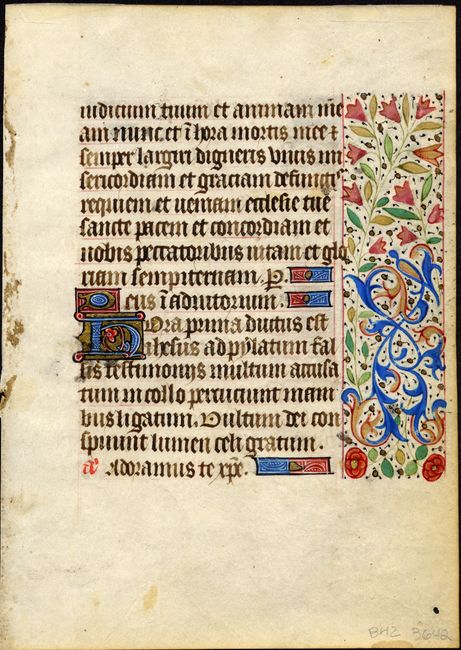 iudicium tuum et animam me
am nunc et i hora mortis mee et
semper largiri digneris viuis mi
sericordiam et graciam defunctis
requiem et ueniam ecclesie tue
sancte pacem et concordiam et
nobis peccatoribus uitam et glo
riam sempiternam. P
Deus i adiutorium.
Hora prima ductus est
ihesus ad pylatum fal
sis testimoniis multum accusa
tum in collo percuciunt mani
bus ligatum. Vultum dei con
spuunt lumen celi gratum.
Adoramus te xpe.
BHZ 3642